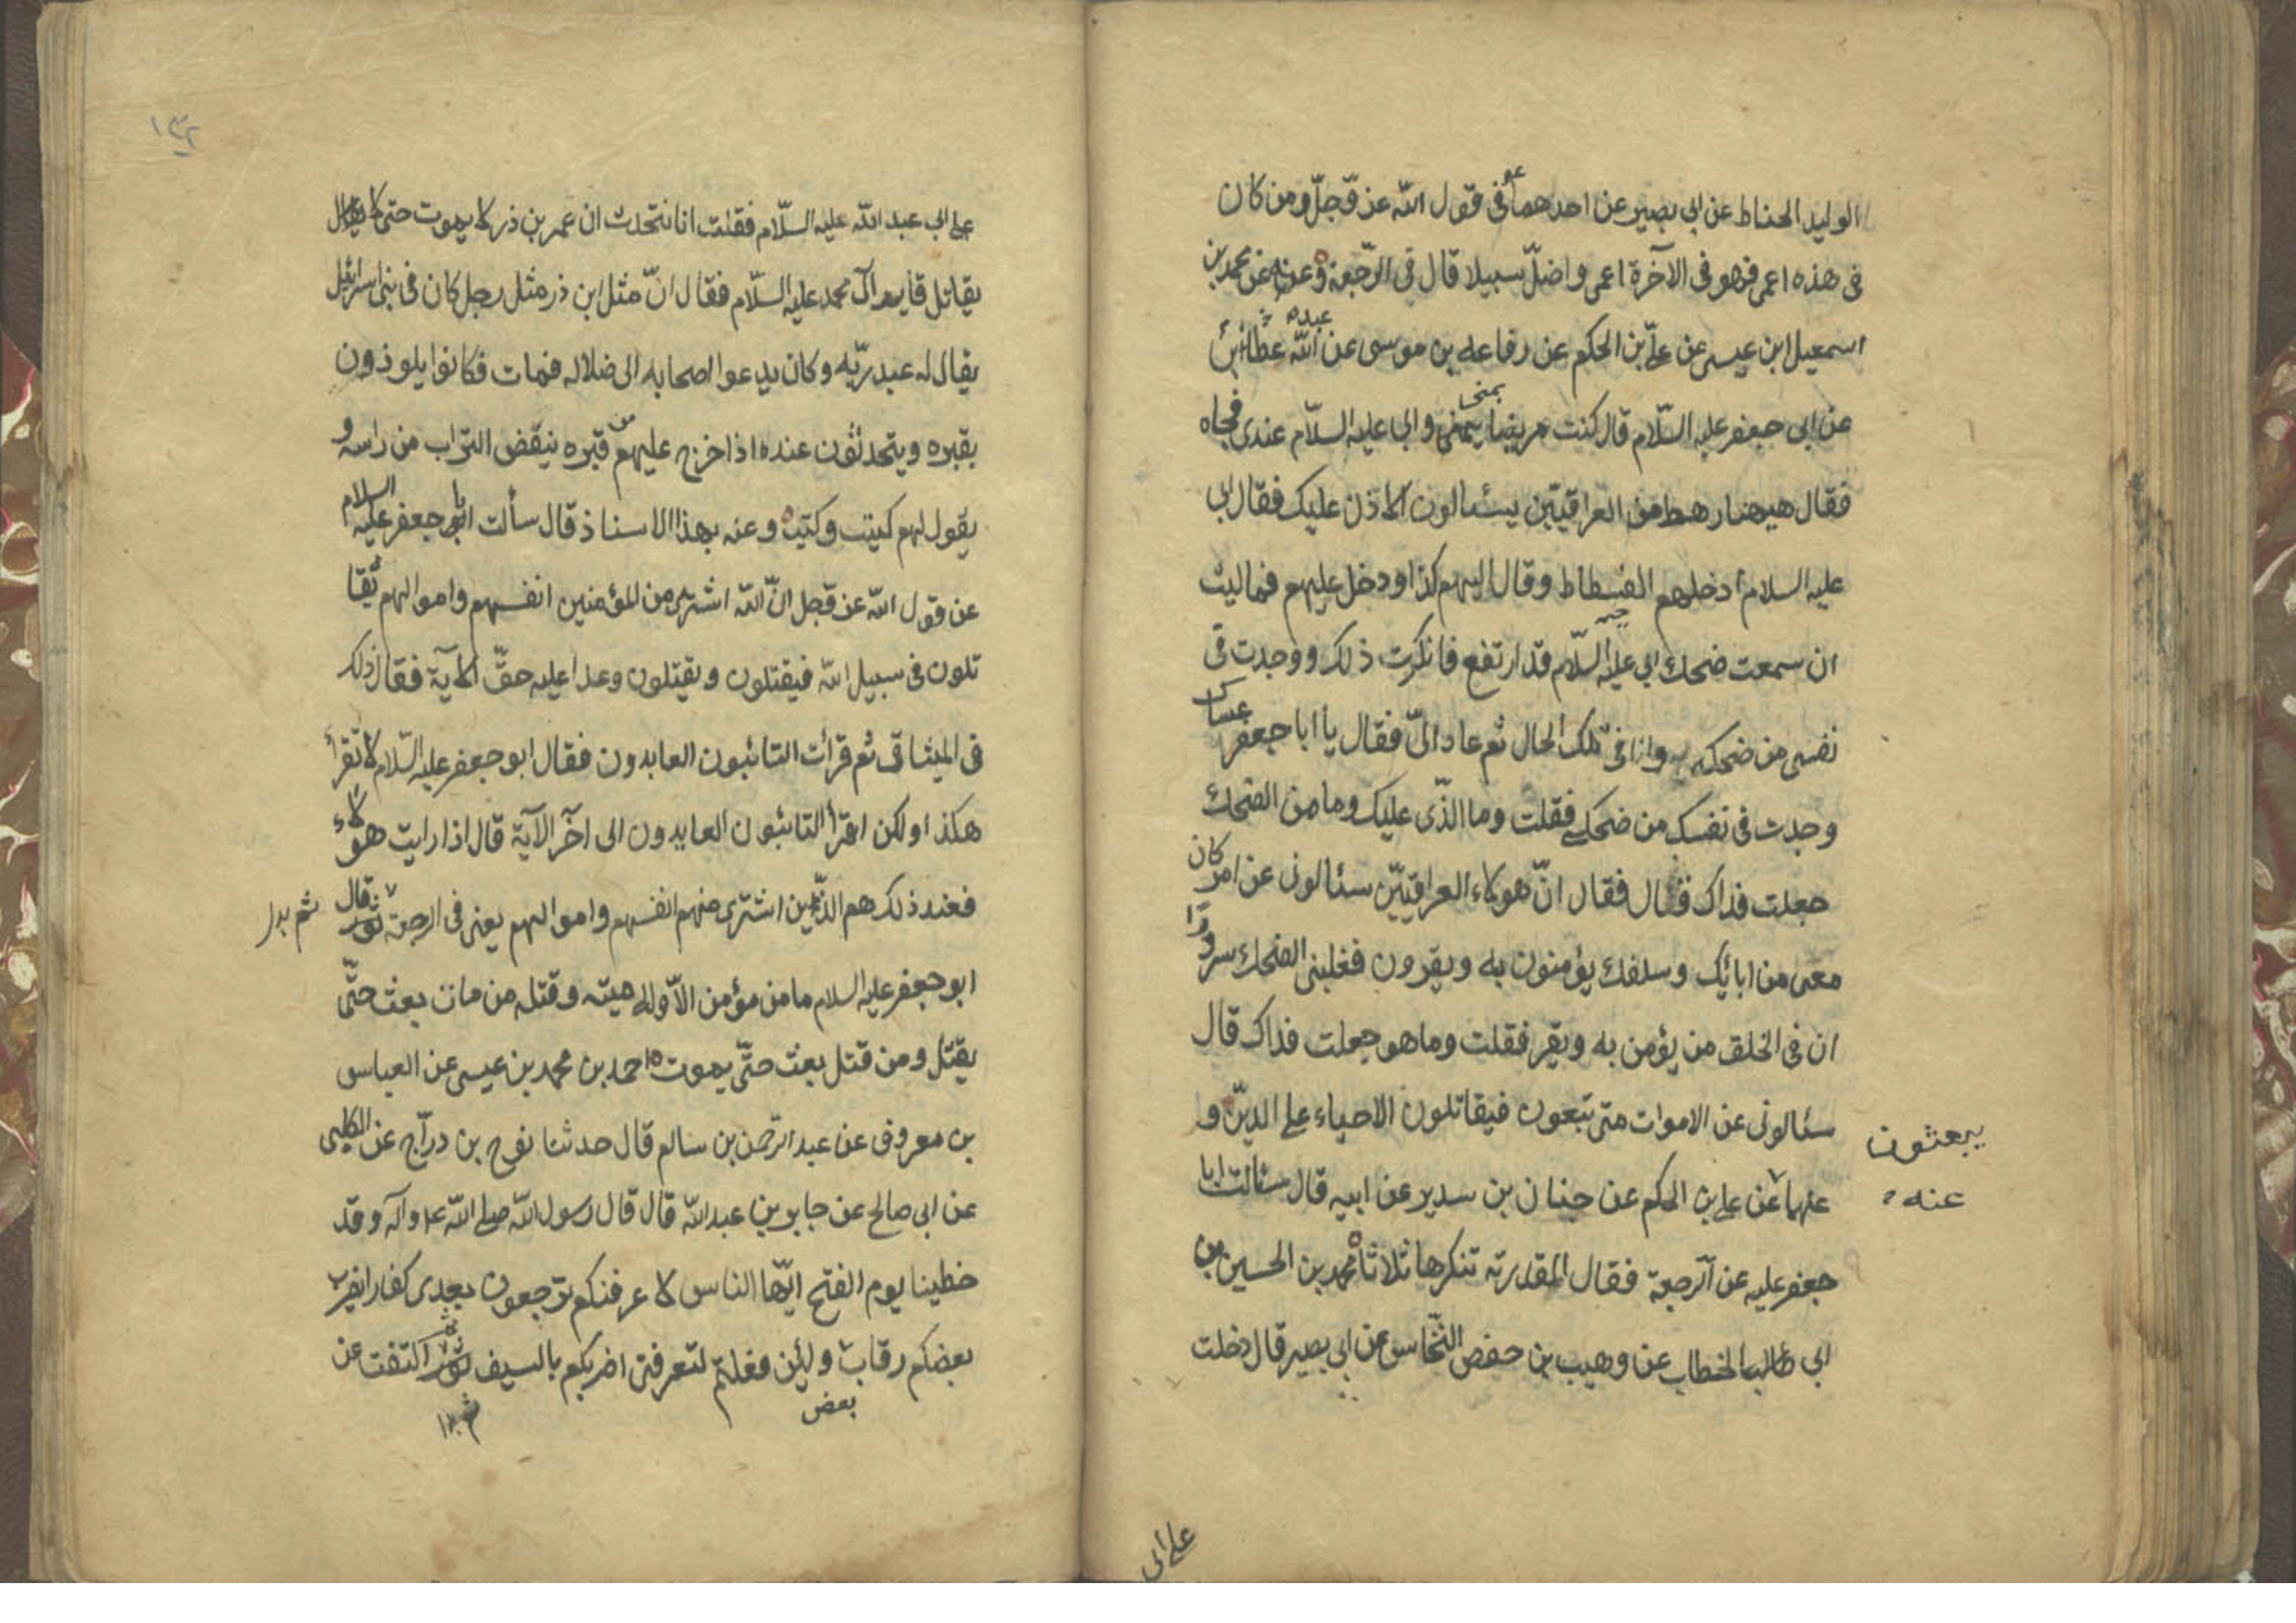 الوليد الحناط عن ابي بصير عن احدهما ع في قول الله عز وجل ومن كان
في هذه اعمى فهو في الآخرة اعمى واضل سبيلا قال في الرجعة وعنه عن محمد بن
اسمعيل ابن عيسى عن علي بن الحكم عن رفاعه بن موسى عن عبد الله عطا بن
عن ابي جعفر عليه السلام قال كنت مريضا بمنى وابي عليه السلام عندي فجاه
فقال هيهنا رهط من العراقيين يسئالون الاذن عليك فقال ابي
عليه السلام ادخلهم الفسطاط وقال اليهم كذا ودخل عليهم فما لبث
ان سمعت ضحك ابي عليه السلام قد ارتفع فانكرت ذلك ووجدت في
نفسي من ضحكه وانا في تلك الحال ثم عاد الي فقال يا ابا جعفر عساك
وجدت في نفسك من ضحكي فقلت وما الذي عليك وما من الضحك
جعلت فداك قال فقال ان هولاء العراقيين سئالوني عن امر كان
معى من ابائك وسلفك يؤمنون به ويقرون فغلبني الضحك سرورا
ان في الخلق من يؤمن به ويقر فقلت وما هو جعلت فداك قال
سئالوني عن الاموات متى تبعون فيقاتلون الاحياء على الدين و
يبعثون
عنهما عن علي بن الحكم عن حنان بن سدير عن ابيه قال سئالت ابا
عنه
جعفر عليه عن الرجعة فقال القدرية تنكرها ثلاثا محمد بن الحسين بن
ابي الخطاب عن وهيب بن حفص النخاس عن ابي بصير قال دخلت
على ابي
١٣٢
على ابي عبد الله عليه السلام فقلت انا نتحدث ان عمر بن ذر لا يموت حتى
يقاتل قايم آل محمد عليه السلام فقال ان مثل ابن ذر مثل رجل كان في بني اسرائيل
يقال له عبد ربه وكان يدعوا اصحابه الى ضلاله فمات فكانوا يلوذون
بقبره ويتحدثون عنده اذا خرج عليهم من قبره ينقض التراب من راسه و
يقول لهم كيت وكيت وعنه بهذا الاسناد قال سألت ابا جعفر عليه السلام
عن قول الله عز وجل ان الله اشترى من المؤمنين انفسهم واموالهم يقا
تلون في سبيل الله فيقتلون ويقتلون وعدا عليه حقا الآية فقال ذلك
في الميثاق ثم قرأت التائبون العابدون فقال ابو جعفر عليه السلام لا تقرأ
هكذا ولكن اقرأ التائبون العابدون الى آخر الآية قال اذا رايت هولاء
فعند ذلك هم الذين اشترى منهم انفسهم واموالهم يعني في الرجعة ثم قال
ابو جعفر عليه السلام ما من مؤمن الا وله ميته وقتله من مات بعث حتى
يقتل ومن قتل بعث حتى يموت احمد بن محمد بن عيسى عن العباس
بن معروف عن عبد الرحمن بن سالم قال حدثنا نوح بن دراج عن الكلبي
عن ابي صالح عن جابر بن عبد الله قال قال رسول الله صلى الله ع وآله وقد
خطبنا يوم الفتح ايها الناس لا عرفنكم ترجعون بعدي كفارا يضرب
بعضكم رقاب ولئن فعلتم لتعرفني اضربكم بالسيف ثم التفت عن
بعض